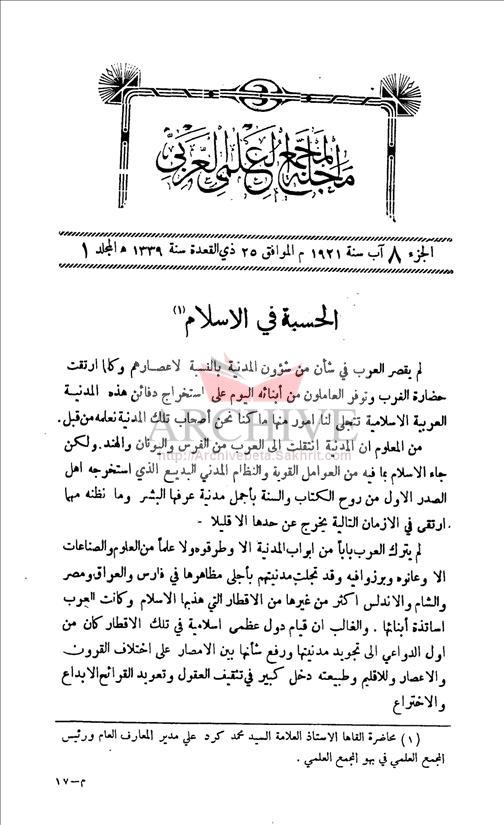 مجلة المجمع العلمي العربي
الجزء ٨ آب سنة ١٩٢١ م الموافق ٢٥ ذي القعدة سنة ١٣٣٩ ه المجلد ١
الحسبة في الاسلام (١)
لم يقصر العرب في شأن من شؤون المدنية بالنسبة لاعصارهم وكلما ارتقت
حضارة الغرب وتوفر العاملون من أبنائه اليوم على استخراج دفائن هذه المدنية
العربية الاسلامية تتجلى لنا امور منها ما كنا نحن أصحاب تلك المدنية نعلمه من قبل.
من المعلوم ان المدنية انتقلت الى العرب من الفرس واليونان والهند. ولكن
جاء الاسلام بما فيه من العوامل القوية والنظام المدني البديع الذي استخرجه اهل
الصدر الاول من روح الكتاب والسنة بأجمل مدنية عرفها البشر وما نظنه مهما
ارتقى في الازمان التالية يخرج عن حدها الا قليلا -
لم يترك العرب باباً من ابواب المدنية الا وطرقوه ولا علماً من العلوم والصناعات
الا وعانوه وبرزوا فيه وقد تجلت مدنيتهم بأجلى مظاهرها في فارس والعراق ومصر
والشام والاندلس اكثر من غيرها من الاقطار التي هذبها الاسلام وكانت العرب
اساتذة أبنائها . والغالب ان قيام دول عظمى اسلامية في تلك الاقطار كان من
اول الدواعي الى تجويد مدنيتها ورفع شأنها بين الامصار على اختلاف القرون
والاعصار وللاقليم وطبيعته دخل كبير في تثقيف العقول وتعويد القرائح الابداع
والاختراع
(١) محاضرة القاها الاستاذ العلامة السيد محمد كرد علي مدير المعارف العام ورئيس
المجمع العلمي في بهو المجمع العلمي .
م-١٧
ARCHIVE
http://Archivebeta.Sakhrit.com